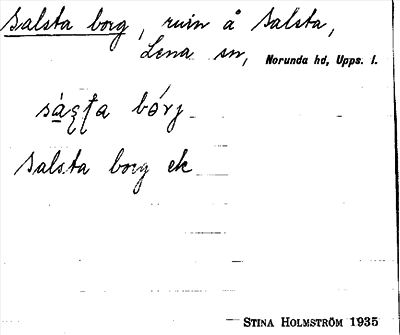 Salsta borg, ruin å Salsta,
Lena sn, Norunda hd, Upps. l.
bórj
Salsta borg ek
STINA HOLMSTRÖM 1935